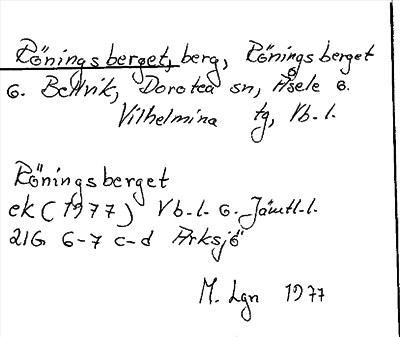 Röningsberget, berg, Röningsberget
o. Bellvik, Dorotea sn, Åsele o.
Vilhelmina tg, Vb.l.
Röningsberget
ek (1977) Vb.l. o. Jämtl.l.
21G 6-7 c-d Arksjö
M. Lgn 1977